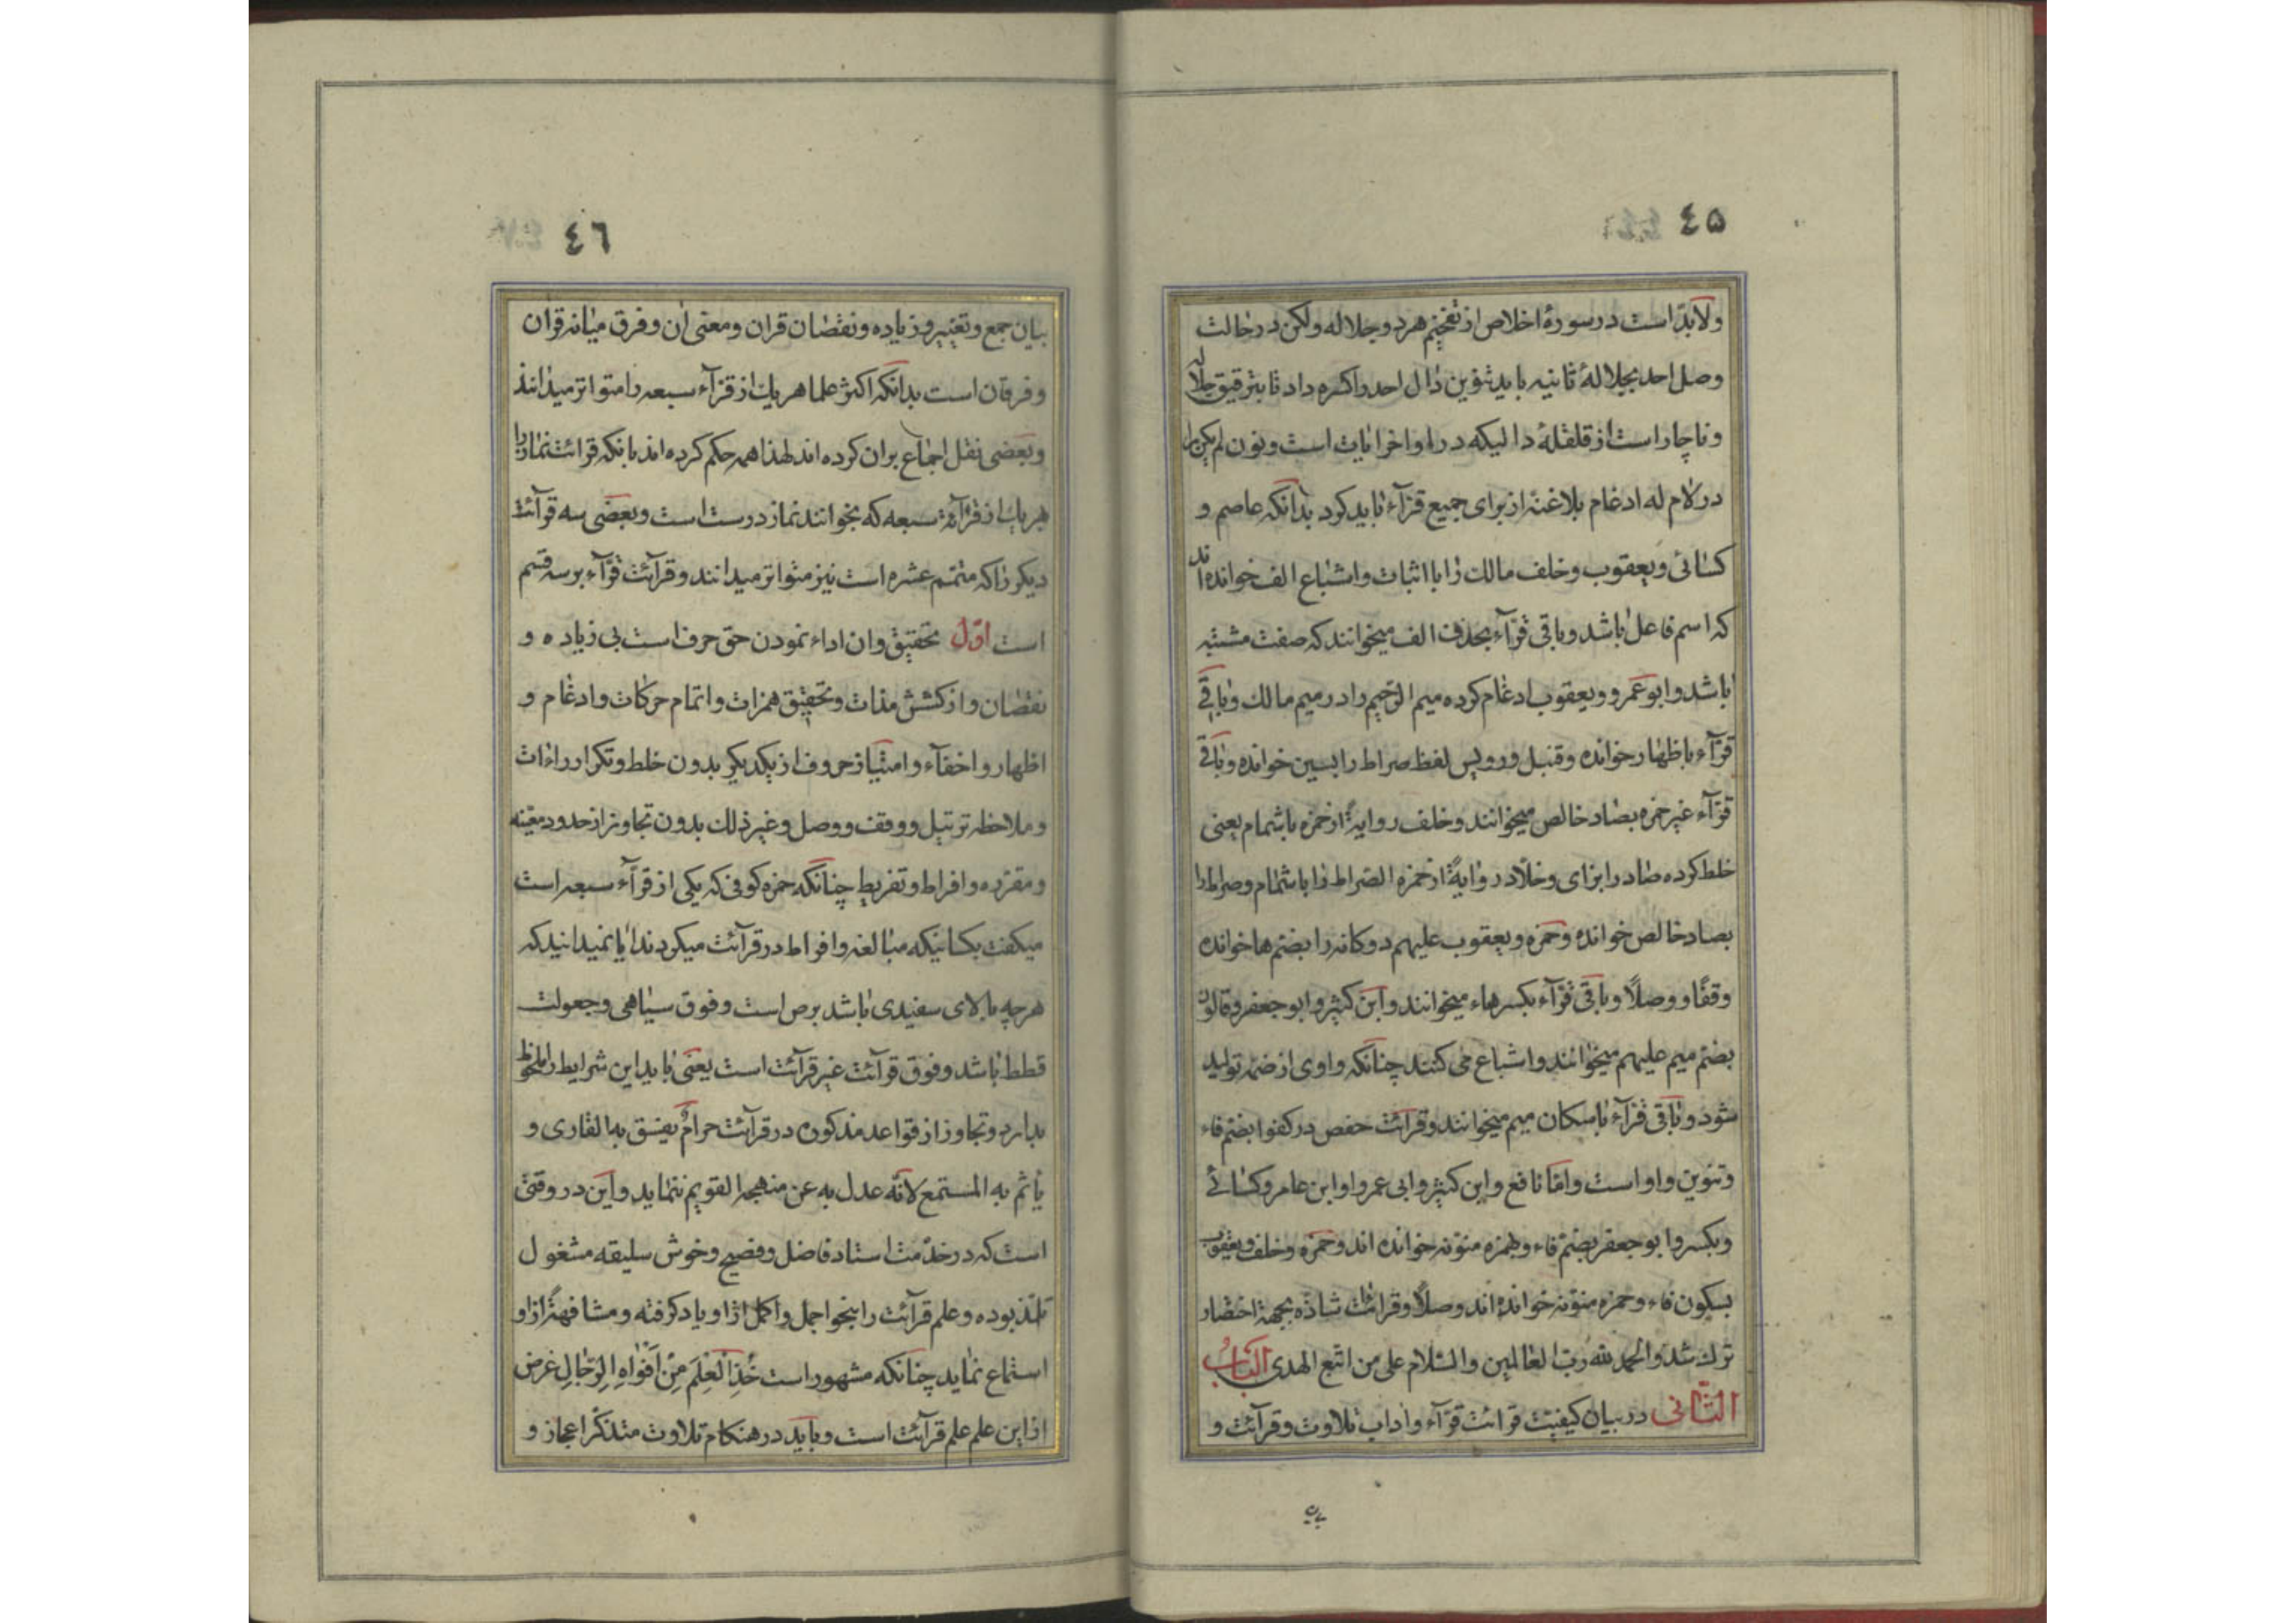 ٤۵
ولابدّ است در سورهٔ اخلاص از تفخیم هر دو جلاله ولکن در حالت
وصل احد بجلالهٔ ثانیه باید تنوین دال احد را کسره داد تا بترقیق جلاله
و ناچار است از قلقلهٔ دالیکه در اواخر ایات است و نون لم یکن را
در لام له ادغام بلاغنه از برای جمیع قرّآء باید کرد بدانکه عاصم و
کسائی و یعقوب و خلف مالک را با اثبات و اشباع الف خوانده‌اند
که اسم فاعل باشد و باقی قرّآء بحذف الف میخوانند که صفت مشبّهه
باشد و ابوعمرو و یعقوب ادغام کرده میم الرّحیم را در میم مالک و باقی
قرّآء باظهار خوانده و قنبل و رویس لفظ صراط را بسین خوانده و باقی
قرّآء غیر حمزه بصاد خالص میخوانند و خلف روایةً از حمزه باشمام یعنی
خلط کرده صاد را بزای و خلّاد روایةً از حمزه الصّراط را باشمام و صراط را
بصاد خالص خوانده و حمزه و یعقوب علیهم دوکانه را بضمّ ها خوانده
وقفًا و وصلًا و باقی قرّآء بکسر هاء میخوانند و ابن کثیر و ابو جعفر و قالون
بضمّ میم علیهم میخوانند و اشباع می کنند چنانکه واوی از ضمّه تولید
شود و باقی قرّآء باسکان میم میخوانند و قرآئت حفص در کفوا بضمّ فاء
و تنوین واو است و امّا نافع و ابن کثیر و ابی عمرو او ابن عامر و کسائے
وبکسر و ابو جعفر بضمّ فاء و بهمزه منوّنه خوانده اند و حمزه و خلف و یعقوب
بسکون فاء و حمزه منوّنه خوانده اند وصلًا و قراءات شاذّه بجهة اختصار
ترک شد والحمد لله ربّ العالمین والسّلام علی من اتبع الهدی الباب
الثّانی در بیان کیفیّت قرائت قرّآء و اداب تلاوت و قرآئت و
٤٦
بیان جمع و تغییر و زیاده و نقصان قران و معنی ان و فرق میانه قران
و فرقان است بدانکه اکثر علما هر یک از قرّآء سبعه را متواتر میدانند
و بعضی نقل اجماع بران کرده اند لهذا همه حکم کرده اند بانکه قرائت نماز را
هر یک از قرآءة سبعه که بخوانند نماز درست است و بعضی سه قرآئت
دیکر را که متمّم عشره است نیز متواتر میدانند و قرآئت قرّآء بر سه قسم
است اوّل تحقیق و ان اداء نمودن حق حرف است بی زیاده و
نقصان و از کشش مدّات و تحقیق همزات و اتمام حرکات و ادغام و
اظهار و اخفآء و امتیاز حروف از یکدیکر بدون خلط و تکرار راءات
و ملاحظه ترتیل و وقف و وصل و غیر ذلک بدون تجاوز از حدود معیّنه
و مقرّره و افراط و تفریط چنانکه حمزه کوفی که یکی از قرّآء سبعه است
میکفت بکسانیکه مبالغه و افراط در قرآئت میکردند ایا نمیدانید که
هر چه بالای سفیدی باشد برص است و فوق سیاهی و جعولت
قطط باشد و فوق قرآئت غیر قرآئت است یعنی باید این شرایط را ملحوظ
بدارد و تجاوز از قواعد مذکوره در قرآئت حرامٌ یفسق به القاری و
یأثم به المستمع لانّه عدل به عن منهجه القویم ننماید و این در وقتی
است که در خدمت استاد فاضل و فصیح و خوش سلیقه مشغول
تلمّذ بوده و علم قرآئت را بنحو اجمل و اکمل از او یاد کرفته و مشافهةً از او
استماع نماید چنانکه مشهور است خُذِ الْعِلْمَ مِنْ اَفْوٰاهِ الرِّجٰالِ غرض
از این علم علم قرآئت است و باید در هنکام تلاوت متذکّر اعجاز و